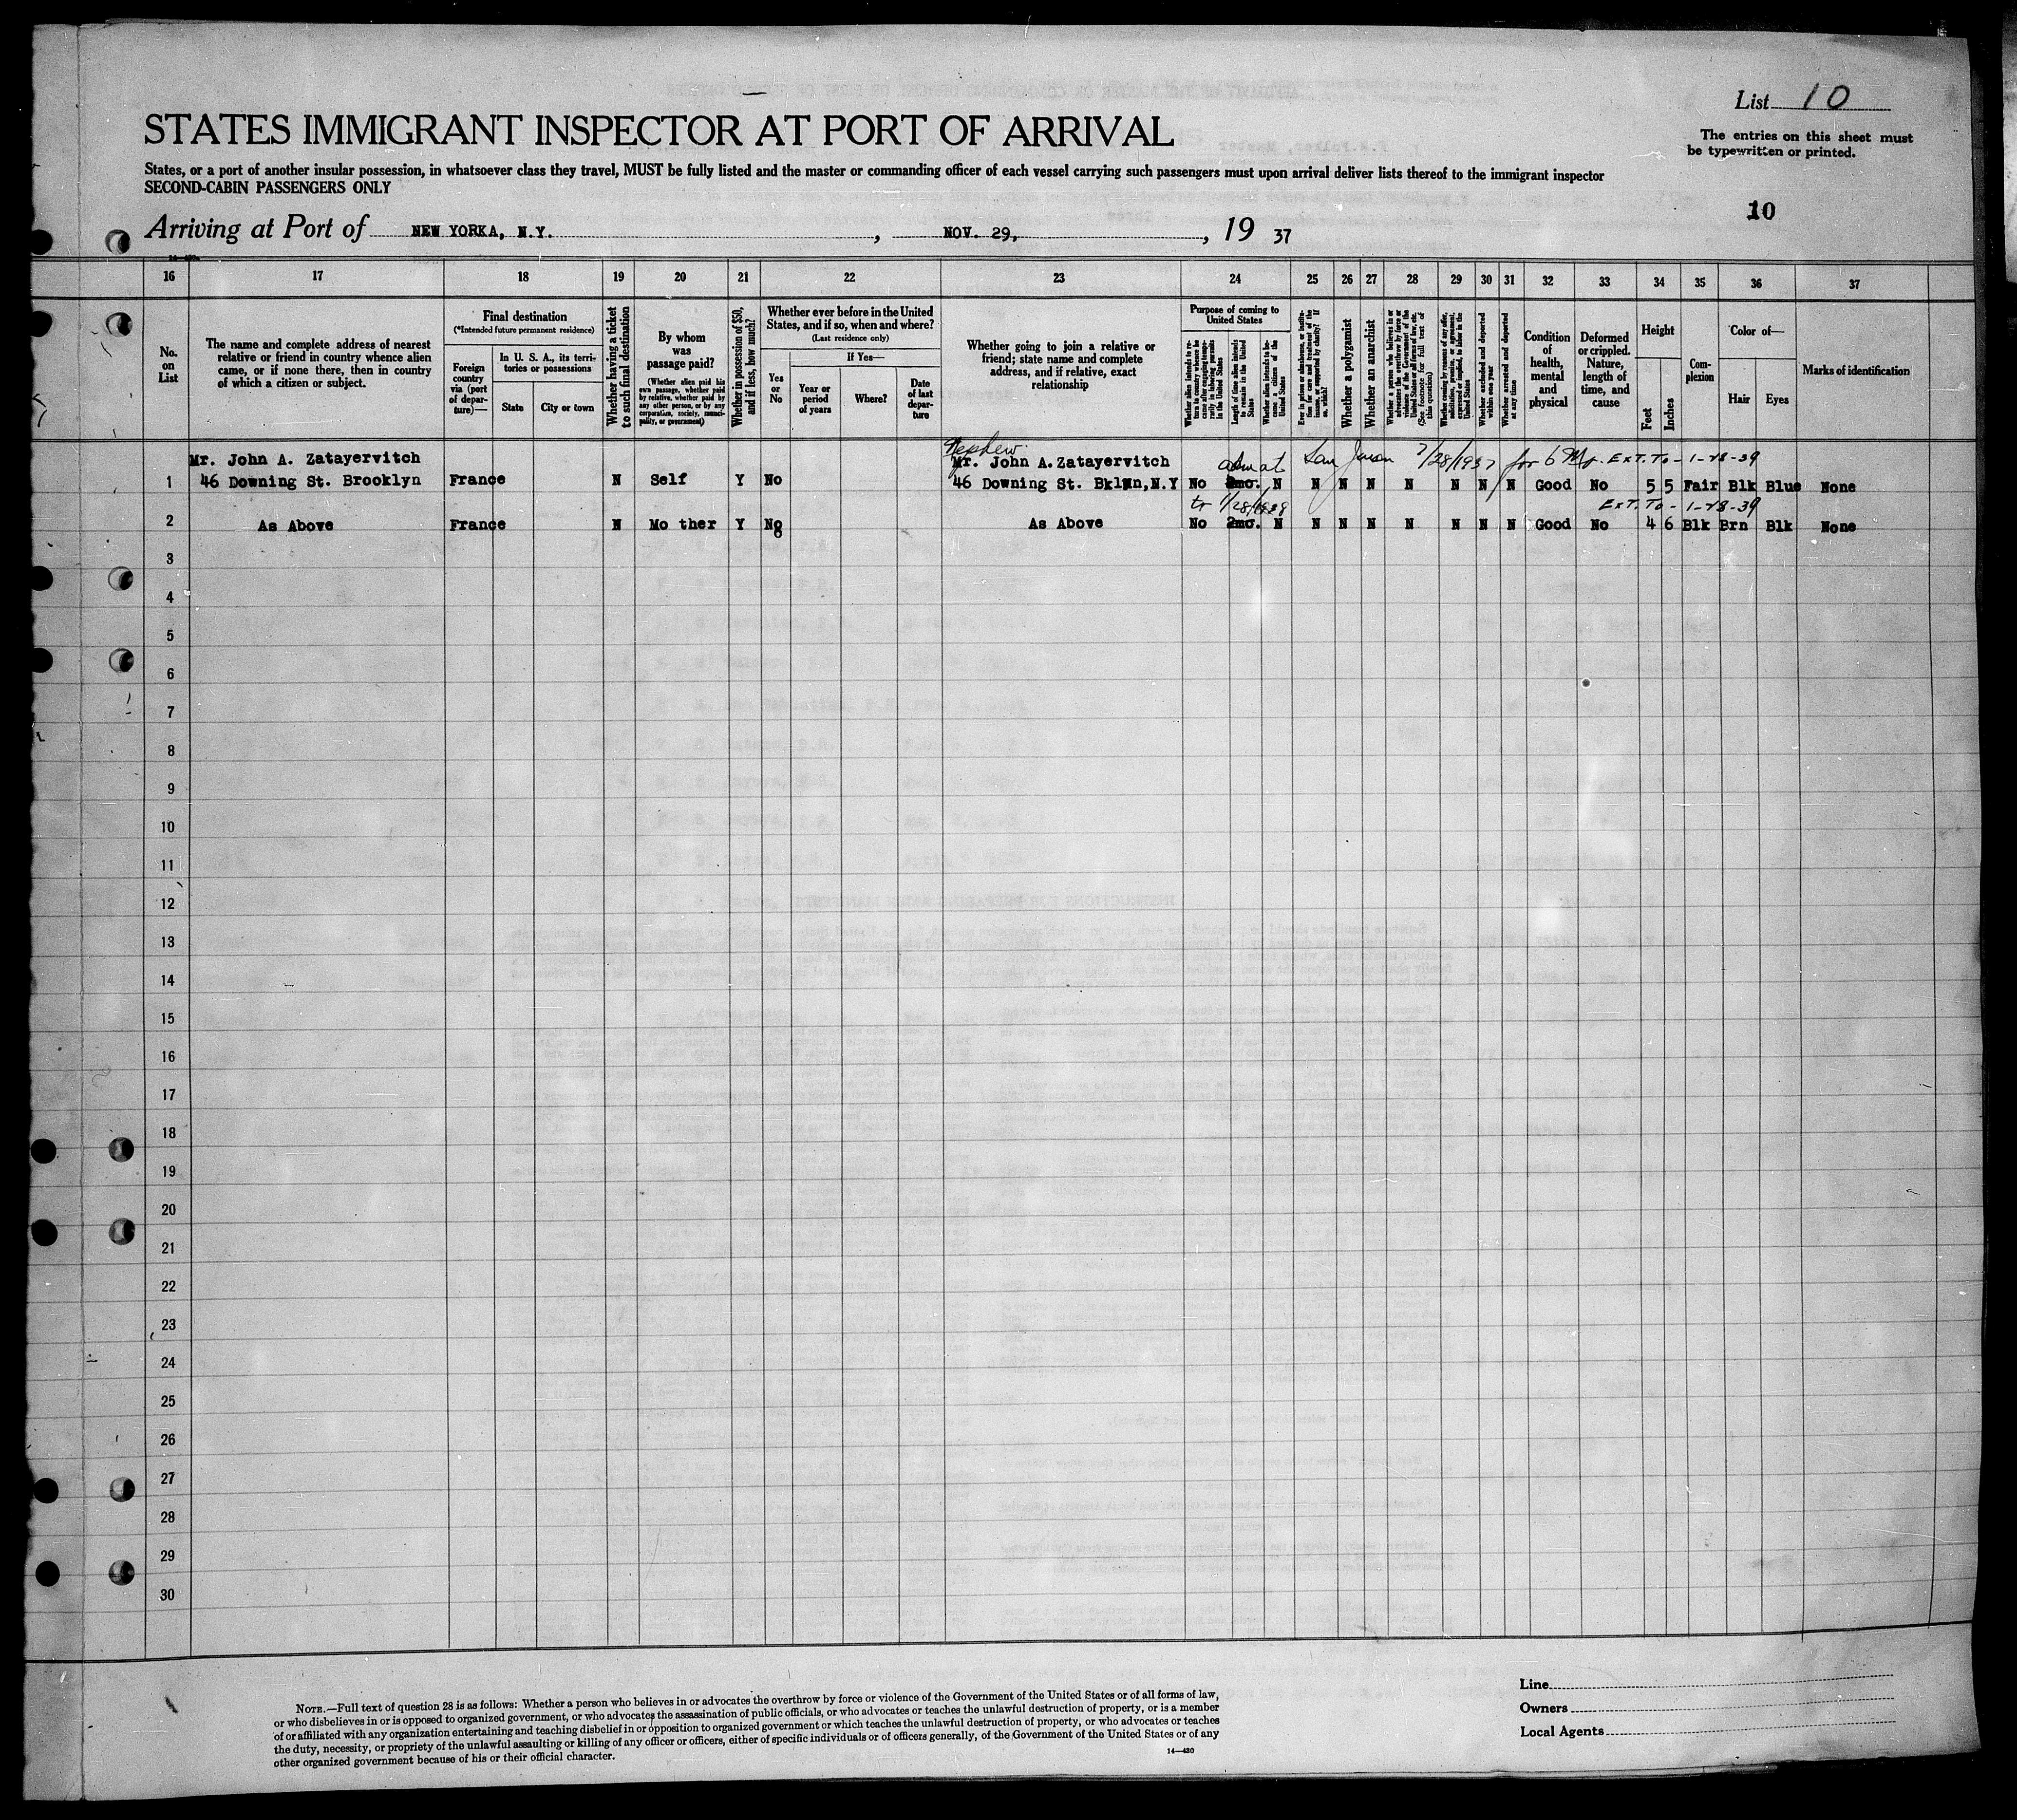 List 10
STATES IMMIGRANT INSPECTOR AT PORT OF ARRIVAL
The entries on this sheet must
be typewritten or printed.
States, or a port of another insular possession, in whatsoever class they travel, MUST be fully listed and the master or commanding officer of each vessel carrying such passengers must upon arrival deliver lists thereof to the immigrant inspector
SECOND-CABIN PASSENGERS ONLY
10
Arriving at Port of NEW YORKA, N.Y. , NOV. 29, , 19 37
16 17 18 19 20 21 22 23 24 25 26 27 28 29 30 31 32 33 34 35 36 37
No. on List
The name and complete address of nearest
relative or friend in country whence alien
came, or if none there, then in country
of which a citizen or subject.
Final destination
(*Intended future permanent residence)
Foreign country via (port of departure)—
In U. S. A., its territories or possessions
State
City or town
Whether having a ticket to such final destination
By whom was passage paid?
(Whether alien paid his own passage, whether paid by relative, whether paid by any other person, or by any corporation, society, municipality, or government)
Whether in possession of $50, and if less, how much?
Whether ever before in the United
States, and if so, when and where?
(Last residence only)
Yes or No
If Yes—
Year or period of years
Where?
Date of last departure
Whether going to join a relative or
friend; state name and complete
address, and if relative, exact
relationship
Purpose of coming to United States
Whether alien intends to return to country whence he came after engaging temporarily in laboring pursuits in the United States
Length of time alien intends to remain in the United States
Whether alien intends to become a citizen of the United States
Ever in prison or almshouse, or institution for care and treatment of the insane, or supported by charity? If so, which?
Whether a polygamist
Whether an anarchist
Whether a person who believes in or advocates the overthrow by force or violence of the Government of the United States or all forms of law, etc. (See footnote for full text of this question)
Whether coming by reason of any offer, solicitation, promise, or agreement, expressed or implied, to labor in the United States
Whether excluded and deported within one year
Whether arrested and deported at any time
Condition of health, mental and physical
Deformed or crippled. Nature, length of time, and cause
Height
Feet
Inches
Complexion
Color of—
Hair
Eyes
Marks of identification
Nephew
Mr. John A. Zatayervitch Mr. John A. Zatayervitch adm at San Juan 7/28/1937 for 6 Mo. EXT. TO - 1-28-39
1 46 Downing St. Brooklyn France N Self Y No 46 Downing St. Bklyn, N.Y No 2mo. N N N N N N N N Good No 5 5 Fair Blk Blue None
to 1/28/1938 EXT. TO - 1-28-39
2 As Above France N Mo ther Y No As Above No 2mo. N N N N N N N N Good No 4 6 Blk Brn Blk None
3
4
5
6
7
8
9
10
11
12
13
14
15
16
17
18
19
20
21
22
23
24
25
26
27
28
29
30
NOTE.—Full text of question 28 is as follows: Whether a person who believes in or advocates the overthrow by force or violence of the Government of the United States or of all forms of law,
or who disbelieves in or is opposed to organized government, or who advocates the assassination of public officials, or who advocates or teaches the unlawful destruction of property, or is a member
of or affiliated with any organization entertaining and teaching disbelief in or opposition to organized government or which teaches the unlawful destruction of property, or who advocates or teaches
the duty, necessity, or propriety of the unlawful assaulting or killing of any officer or officers, either of specific individuals or of officers generally, of the Government of the United States or of any
other organized government because of his or their official character.
14—430
Line
Owners
Local Agents